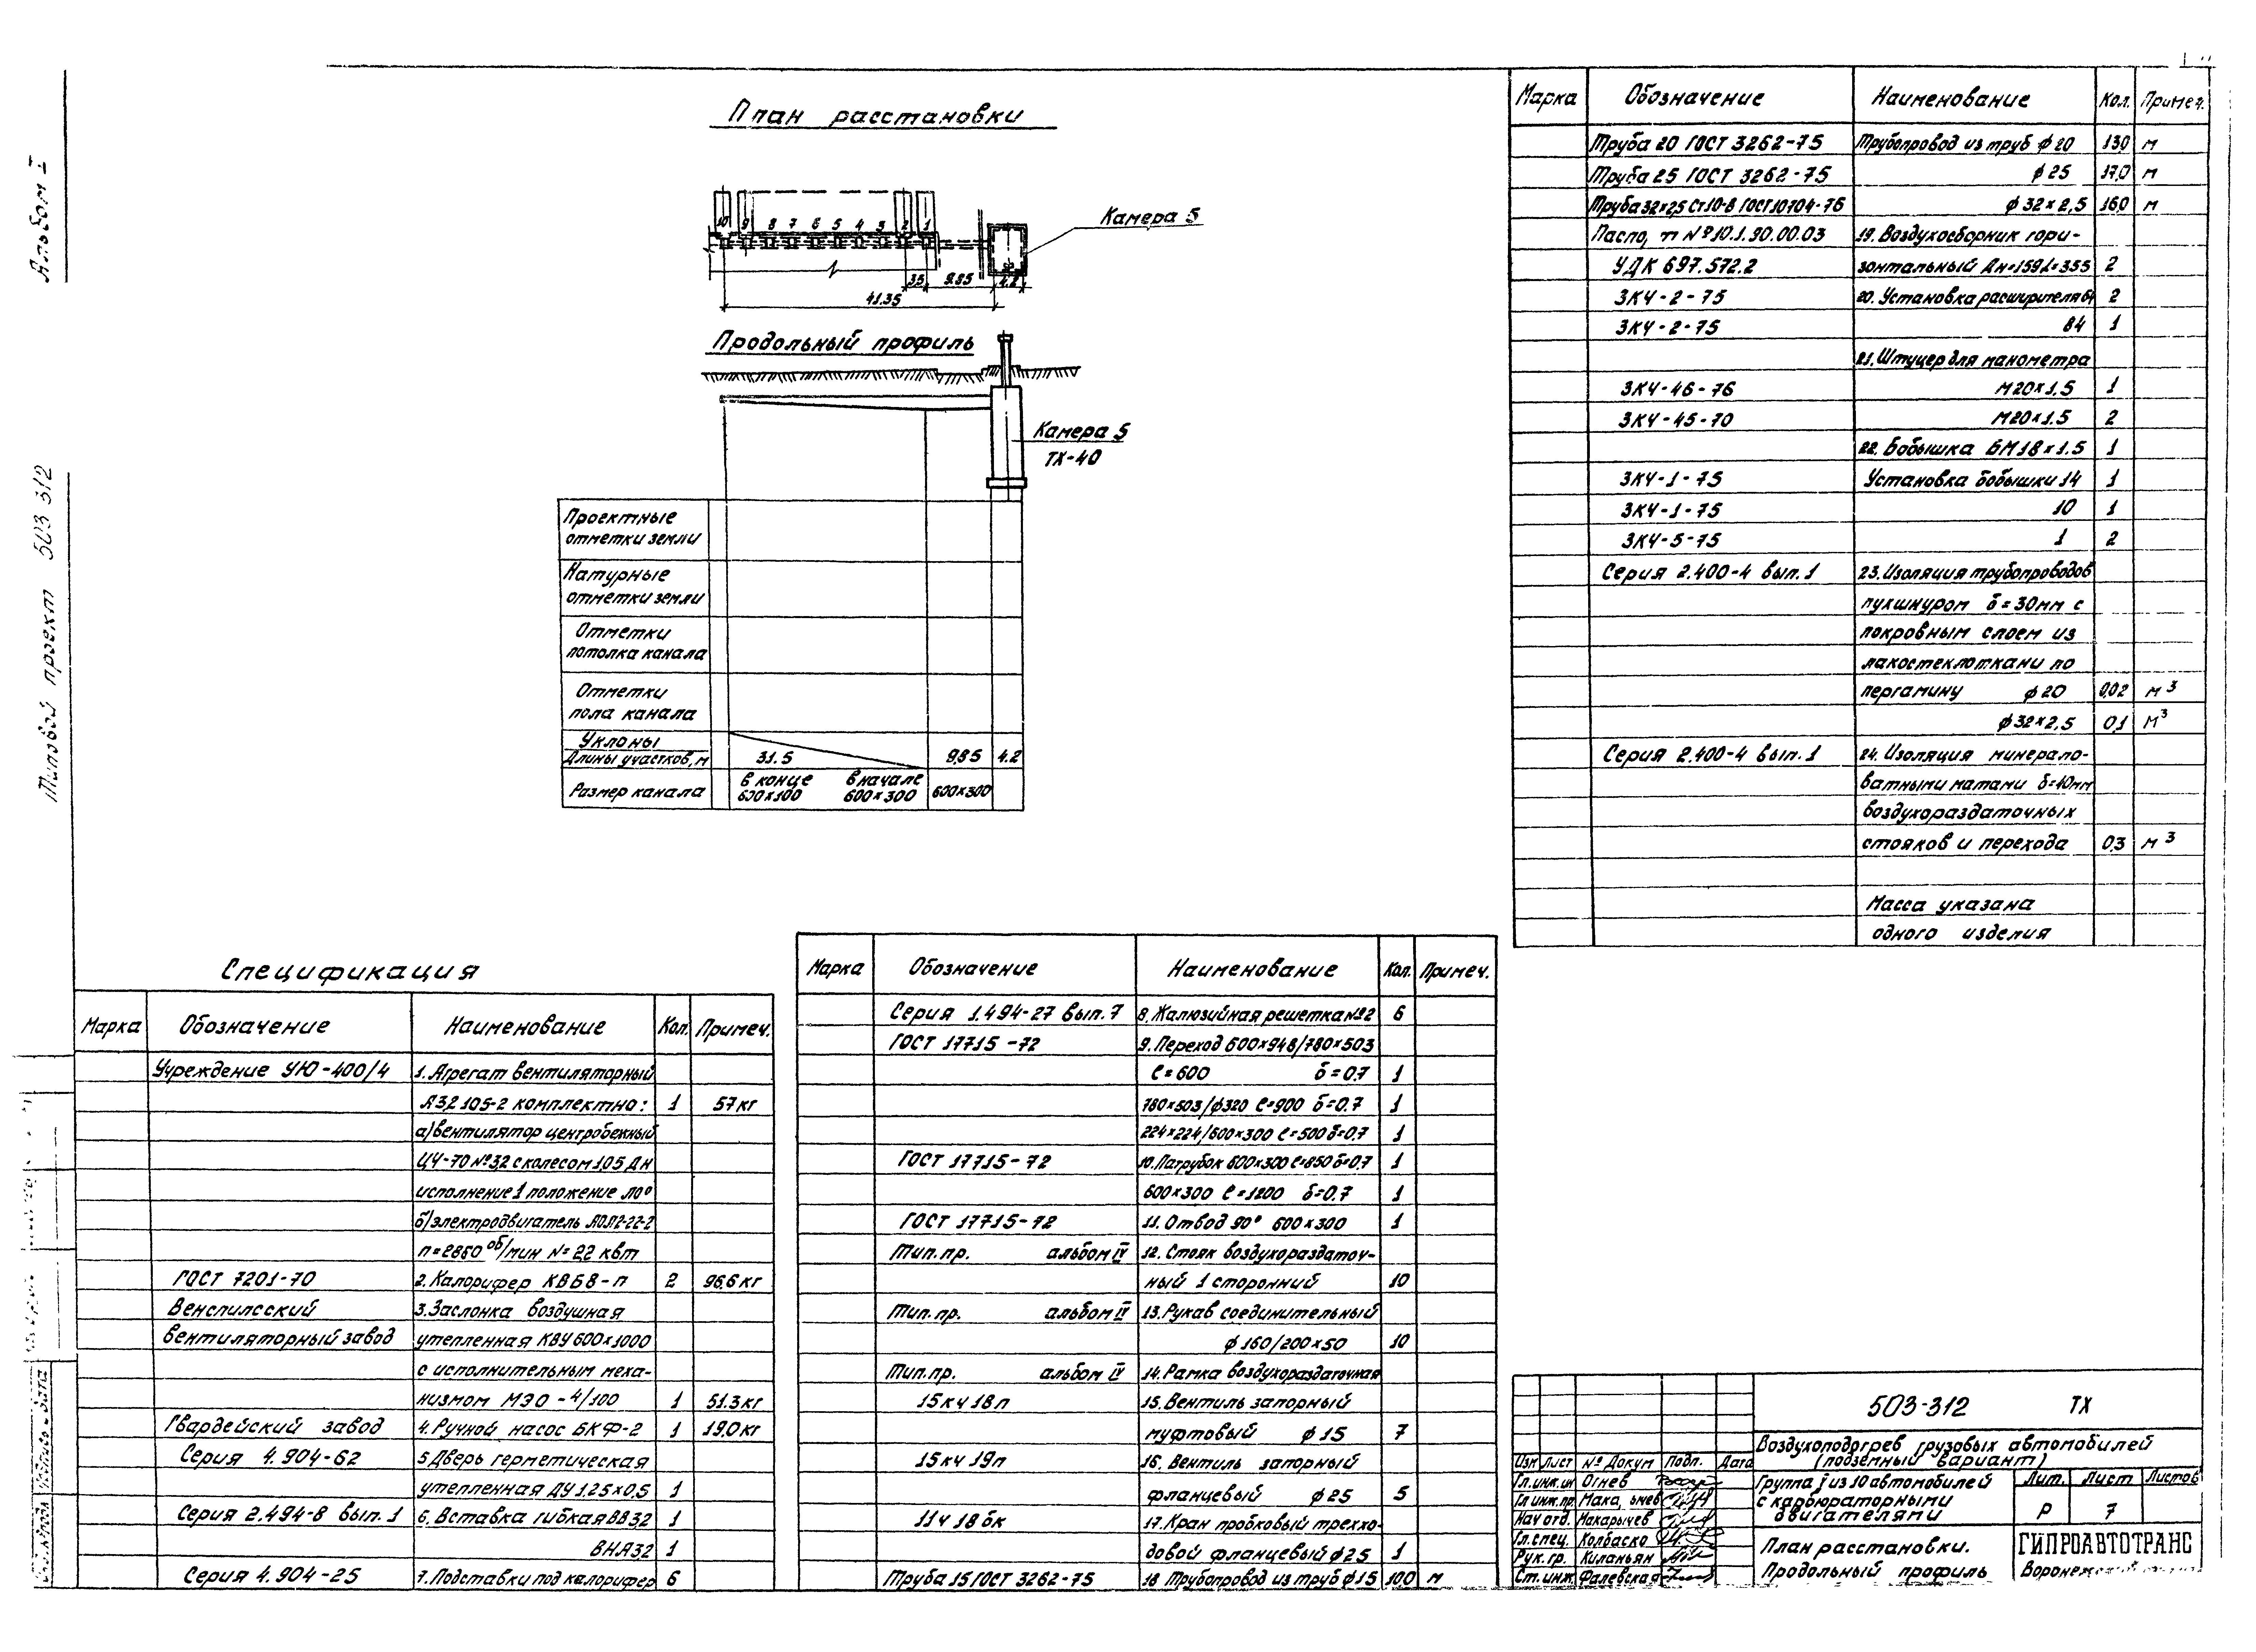 Альбом I
Типовой проект 503 312
План расстановки
10 9 8 7 6 5 4 3 2 1
Камера 5
3.5 9.85 4.2
41.35
Продольный профиль
Камера 5
ТХ-40
Проектные
отметки земли
Натурные
отметки земли
Отметки
потолка канала
Отметки
пола канала
Уклоны
Длины участков, м 31.5 9.85 4.2
Размер канала в конце 600×100 в начале 600×300 600×300
Спецификация
Марка Обозначение Наименование Кол. Примеч.
Учреждение УЮ-400/4 1. Агрегат вентиляторный
А3,2 105-2 комплектно: 1 57 кг
а) вентилятор центробежный
Ц4-70 №3,2 с колесом 1,05 Дн
исполнение 1 положение Л0°
б) электродвигатель АОЛ2-22-2
n=2860 об/мин N=2.2 квт
ГОСТ 7201-70 2. Калорифер КВБ8-п 2 96.6 кг
Венспилсский 3. Заслонка воздушная
вентиляторный завод утепленная КВУ 600×1000
с исполнительным меха-
низмом МЭО-4/100 1 51.3 кг
Гвардейский завод 4. Ручной насос БКФ-2 1 19.0 кг
Серия 4.904-62 5 Дверь герметическая
утепленная ДУ 1.25×0,5 1
Серия 2.494-8 вып. 1 6. Вставка гибкая ВВ3,2 1
ВНА32 1
Серия 4.904-25 7. Подставки под калорифер 6
Марка Обозначение Наименование Кол. Примеч.
Серия 1.494-27 вып. 7 8. Жалюзийная решетка №2 6
ГОСТ 17715-72 9. Переход 600×948/780×503
ℓ=600 δ=0.7 1
780×503/ф320 ℓ=900 δ=0.7 1
224×224/600×300 ℓ=500 δ=0.7 1
ГОСТ 17715-72 10. Патрубок 600×300 ℓ=850 δ=0,7 1
600×300 ℓ=1200 δ=0.7 1
ГОСТ 17715-72 11. Отвод 90° 600×300 1
Тип. пр. альбом IV 12. Стояк воздухораздаточ-
ный 1 сторонний 10
Тип. пр. альбом IV 13. Рукав соединительный
ф 160/200×50 10
Тип. пр. альбом IV 14. Рамка воздухораздаточная
15кч 18п 15. Вентиль запорный
муфтовый ф 15 7
15кч 19п 16. Вентиль запорный
фланцевый ф 25 5
11ч 18бк 17. Кран пробковый треххо-
довой фланцевый ф25 1
Труба 15 ГОСТ 3262-75 18 Трубопровод из труб ф15 10,0 м
Марка Обозначение Наименование Кол. Примеч.
Труба 20 ГОСТ 3262-75 Трубопровод из труб ф 20 13,0 м
Труба 25 ГОСТ 3262-75 ф 25 17,0 м
Труба 32×2,5 Ст10-В ГОСТ 10704-76 ф 32×2,5 16,0 м
№10.1.90.00.03 19. Воздухосборник гори-
УДК 697.572.2 зонтальный Дн=159 L=355 2
ЗК4-2-75 20. Установка расширителя 64 2
ЗК4-2-75 84 1
21. Штуцер для манометра
ЗК4-46-76 М20×1.5 1
ЗК4-45-70 М20×1.5 2
22. Бобышка БМ18×1.5 1
ЗК4-1-75 Установка бобышки 14 1
ЗК4-1-75 10 1
ЗК4-5-75 1 2
Серия 2.400-4 вып. 1 23. Изоляция трубопроводов
пухшнуром δ=30мм с
покровным слоем из
лакостеклоткани по
пергамину ф20 0,02 м³
ф32×2,5 0,1 м³
Серия 2.400-4 вып. 1 24. Изоляция минерало-
ватными матами δ=40мм
воздухораздаточных
стояков и перехода 0,3 м³
Масса указана
одного изделия
503-312 ТХ
Воздухоподогрев грузовых автомобилей
(подземный вариант)
Изм Лист № Докум Подп. Дата
Гл. инж. ин Огнев
Гл инж. пр.
Нач отд. Макарычев
Гл. спец. Колбаско
Рук. гр. Киланьян
Ст. инж. Фалевская
Группа j из 10 автомобилей
с карбюраторными
двигателями
Лит. Лист Листов
Р 7
План расстановки.
Продольный профиль
ГИПРОАВТОТРАНС